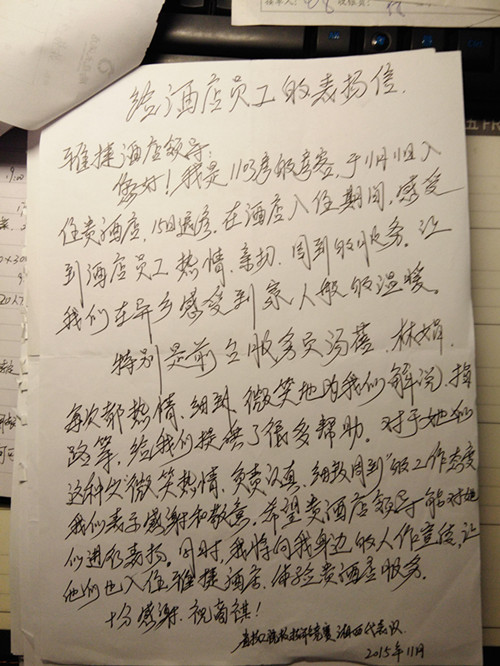 给酒店员工的表扬信.
雅捷酒店领导:
您好!我是1103房的房客,于11月11日入
住贵酒店,15日退房.在酒店入住期间,感受
到酒店员工热情、亲切、周到的服务.让
我们在异乡感受到家人般的温暖。
特别是前台服务员汤蓓、林娟,
每次都热情、细致、微笑地为我们解说、指
路等,给我们提供了很多帮助。对于她们
这种"微笑热情、负责认真、细致周到"的工作态度
我们表示感谢和敬意.希望贵酒店领导能对她
们进行表扬。同时,我将向我身边的人作宣传,让
他们也入住雅捷酒店,体验贵酒店服务。
十分感谢.祝商祺!
代表队
2015年11月